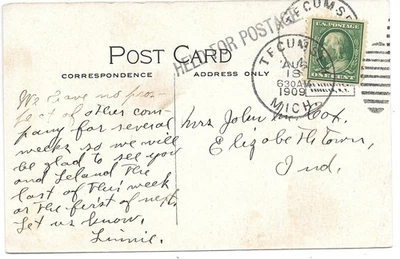 POST CARD
HELD FOR POSTAGE
CORRESPONDENCE
ADDRESS ONLY
TECUMSEH
TECUMSEH
AUG
13
630AM
1909
MICH.
U.S. POSTAGE
ONE CENT
We have no pros-
pect of other com-
pany for several
weeks so we will
be glad to see you
and Leland the
last of this week
or the first of next
Let us know.
Linnie.
Mrs John M. Cox.
Elizabethtown,
Ind.